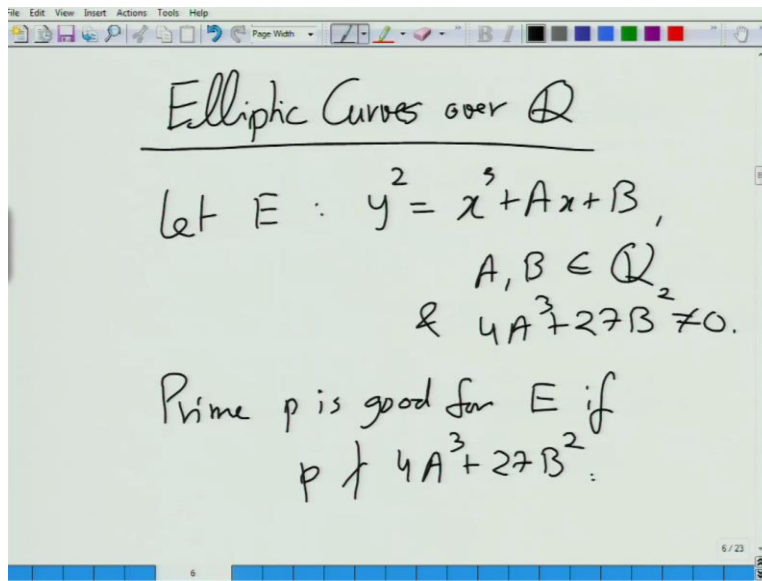 File Edit View Insert Actions Tools Help
Page Width
Elliptic Curves over ℚ
Let E : y² = x³ + Ax + B,
A, B ∈ ℚ
& 4A³ + 27B² ≠ 0.
Prime p is good for E if
p ∤ 4A³ + 27B².
6 / 23
6